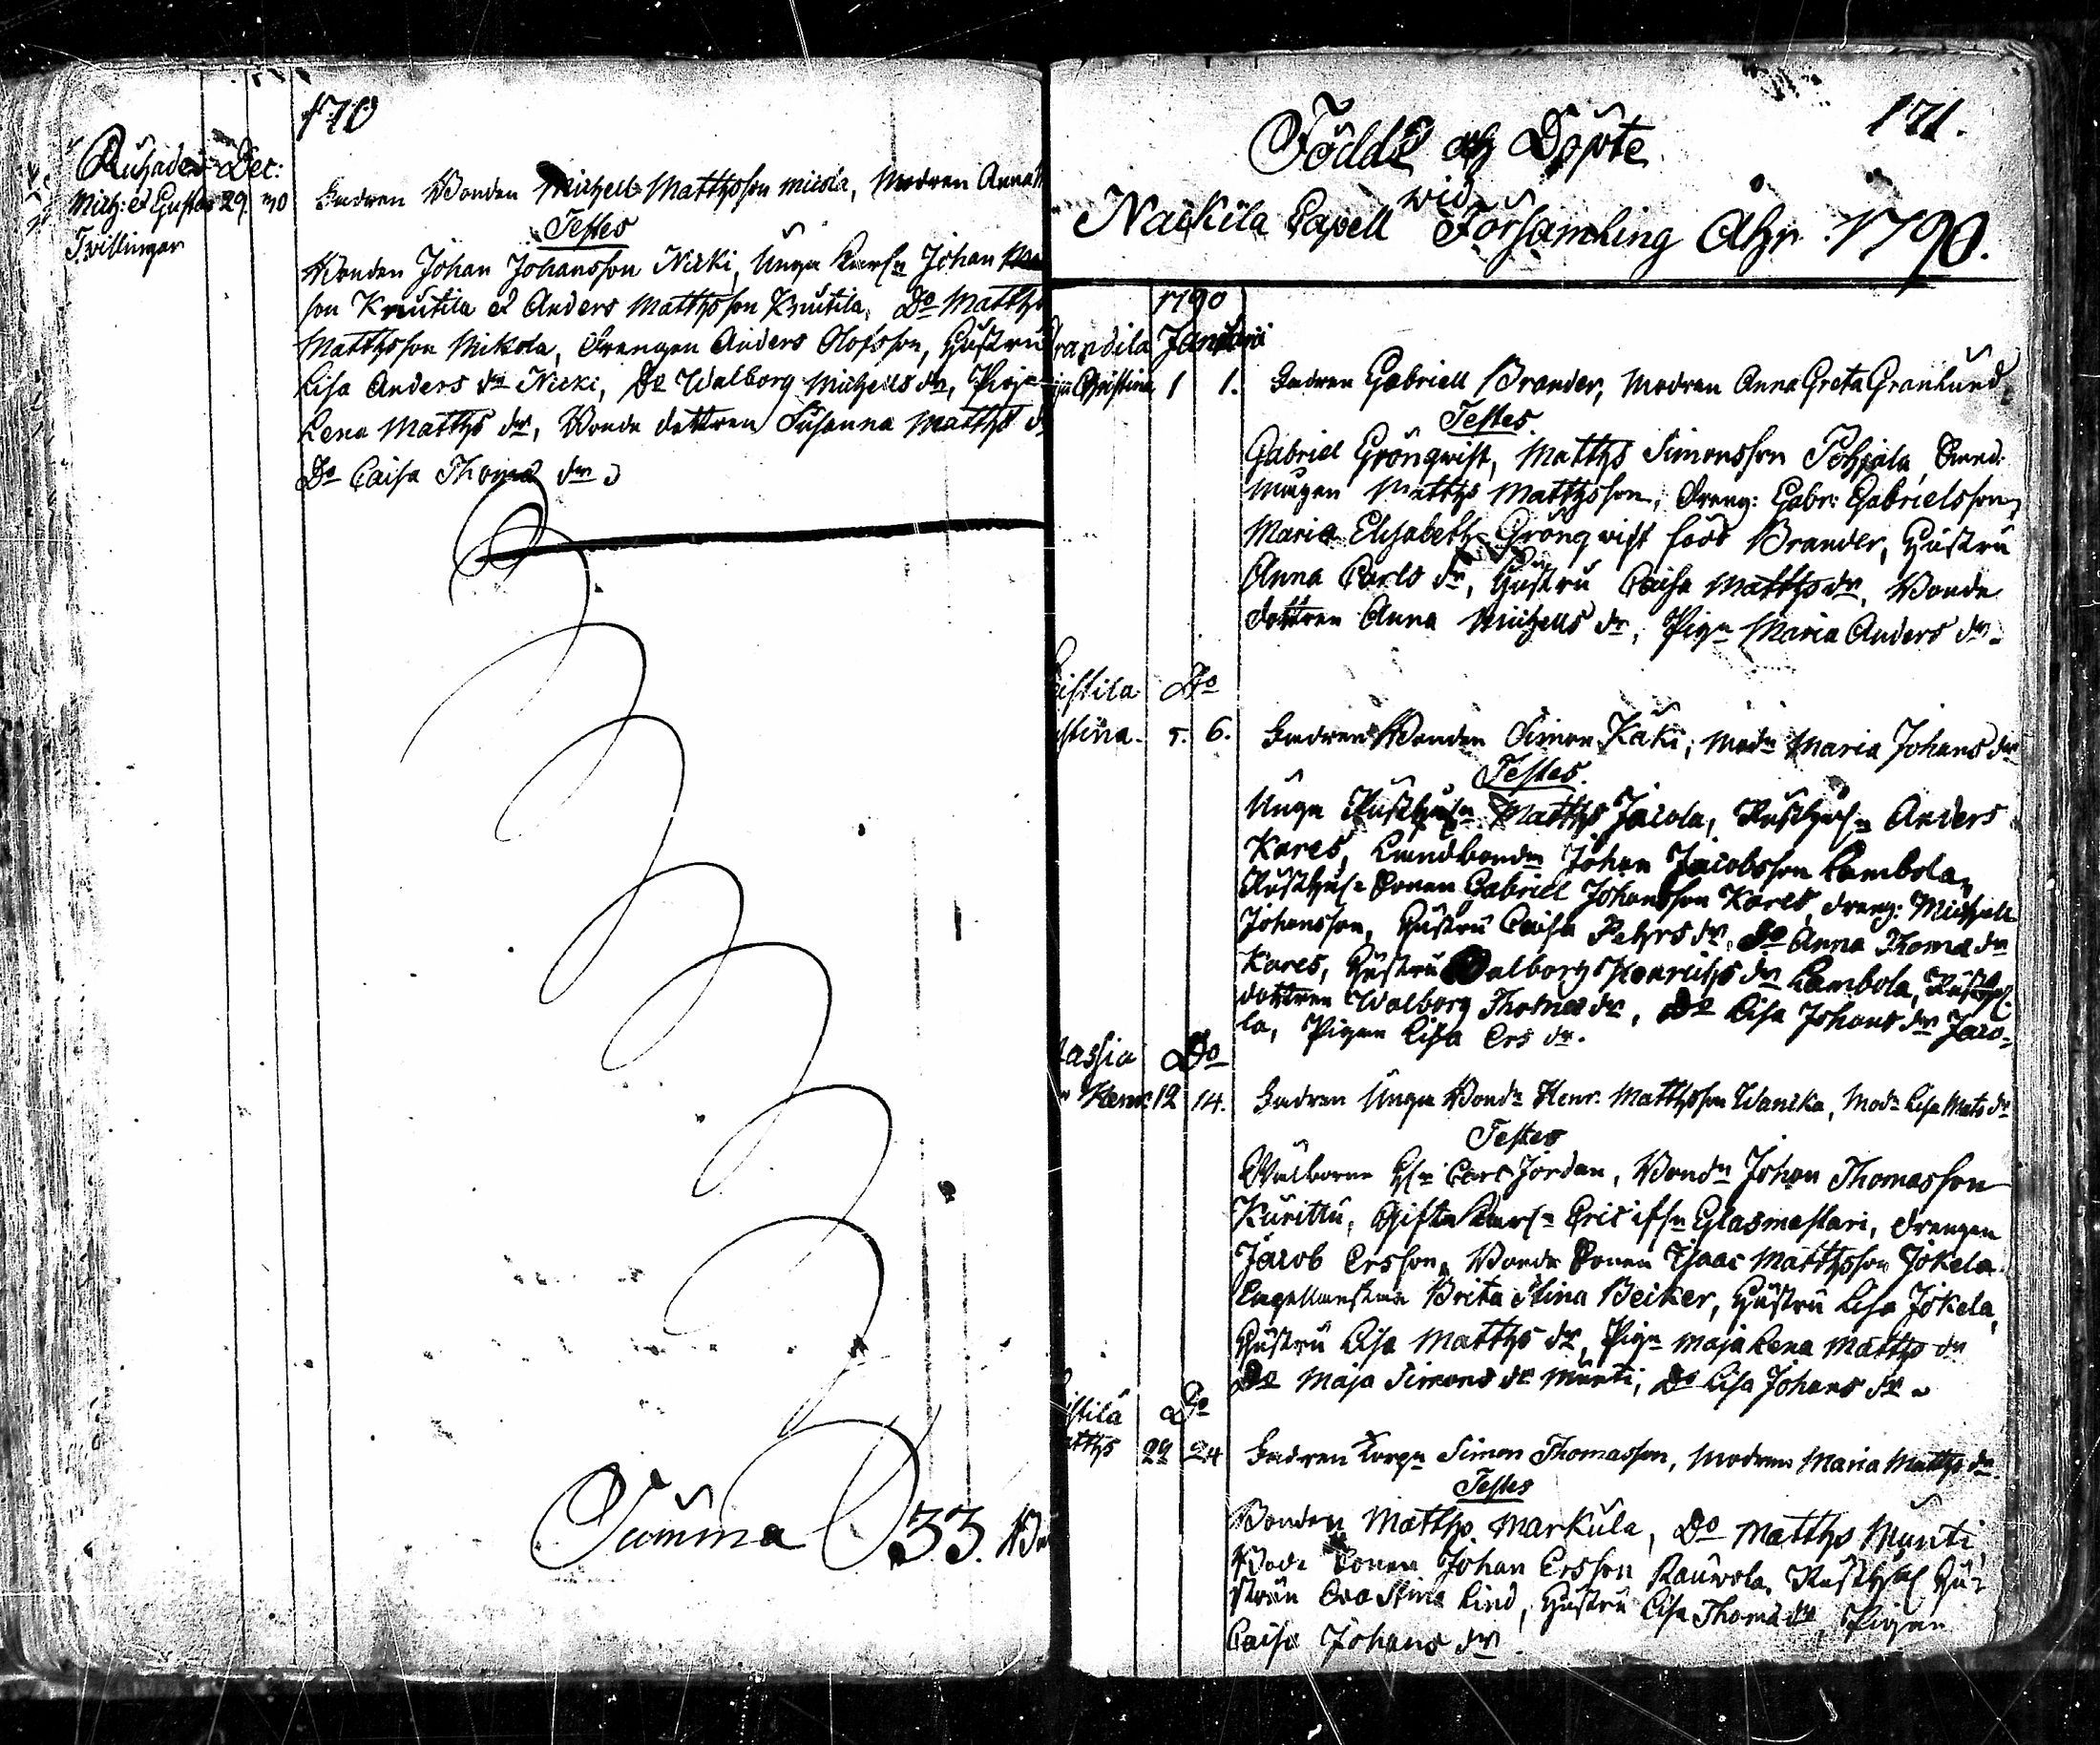 170
Ruhade Dec:
Mich: et Gustav 29. 30 Fadren Bonden Michell Matthsson Micola, Modren Anna
Tvillingar
Testes
Bonden Johan Johansson Nicki, Unga Karln Johan
son Knutila et Anders Matthsson Knutila, Do Matths
Matthsson Mikola, Drengen Anders Olofsson, Hustru
Lisa Anders dr Nicki, Do Walborg Michells dr, Piga
Lena Matths dr, Bonde dottren Susanna Matths
Do Caisa Thomæ dr
Summa 33.
171.
Födde och Döpte
wid
Nackila Capell Församling Åhr 1790.
1790
Januarii
Christina 1 1. Fadren Gabriell Brander, Modren Anna Greta Granlund
Testes
Gabriel Gröngwist, Matths Simonsson Pohjala
Matths Matthsson, Dreng: Gabr: Gabrielsson
Maria Elisabeth Gröngwist född Brander, Hustru
Anna Carls dr, Hustru Caisa Matths dr, Bonde
dottren Anna Michells dr, Pign Maria Anders dr
Do
5. 6. Fadren Bonden Simon Käki, Modn Maria Johans dr
Testes
Unga Rusthn Matths Jacola, Rusthn Anders
Kares, Landbondn Johan Jacobsson Lambola,
Sonen Gabriell Johansson Kares, Dreng: Michell
Johansson, Hustru Caisa Pehrs dr, Do Anna Thomæ dr
Kares, Hustru Walborg Henrichs dr Lambola,
dottren Walborg Thomæ dr, Do Lisa Johans dr Jaco-
la, Pigan Lisa Ers dr.
Do
Henr: 12 14. Fadren Unga Bondn Henr. Matthsson Wanika, Modn Lisa Mats dr
Testes
Wälborne Hn Carl Jordan, Bondn Johan Thomasson
Kurittu, Gifta Karln Eric Glasmestari, Drengen
Jacob Ersson, Bonde Sonen Isaac Matthsson Jokela
Brita Stina Beiker, Hustru Lisa Jokela,
Hustru Lisa Matths dr, Pign Maja Lena Matths dr
Do Maja Simons dr Munti, Do Lisa Johans dr
Do
24 Fadren Torpn Simon Thomasson, Modren Maria Matths dr
Testes
Bonden Matths Markula, Do Matths Munti
Bonde Sonen Johan Ersson Rauwola, Hu-
strun Eva Stina Lind, Hustru Lisa Thomæ dr, Pigan
Caisa Johans dr